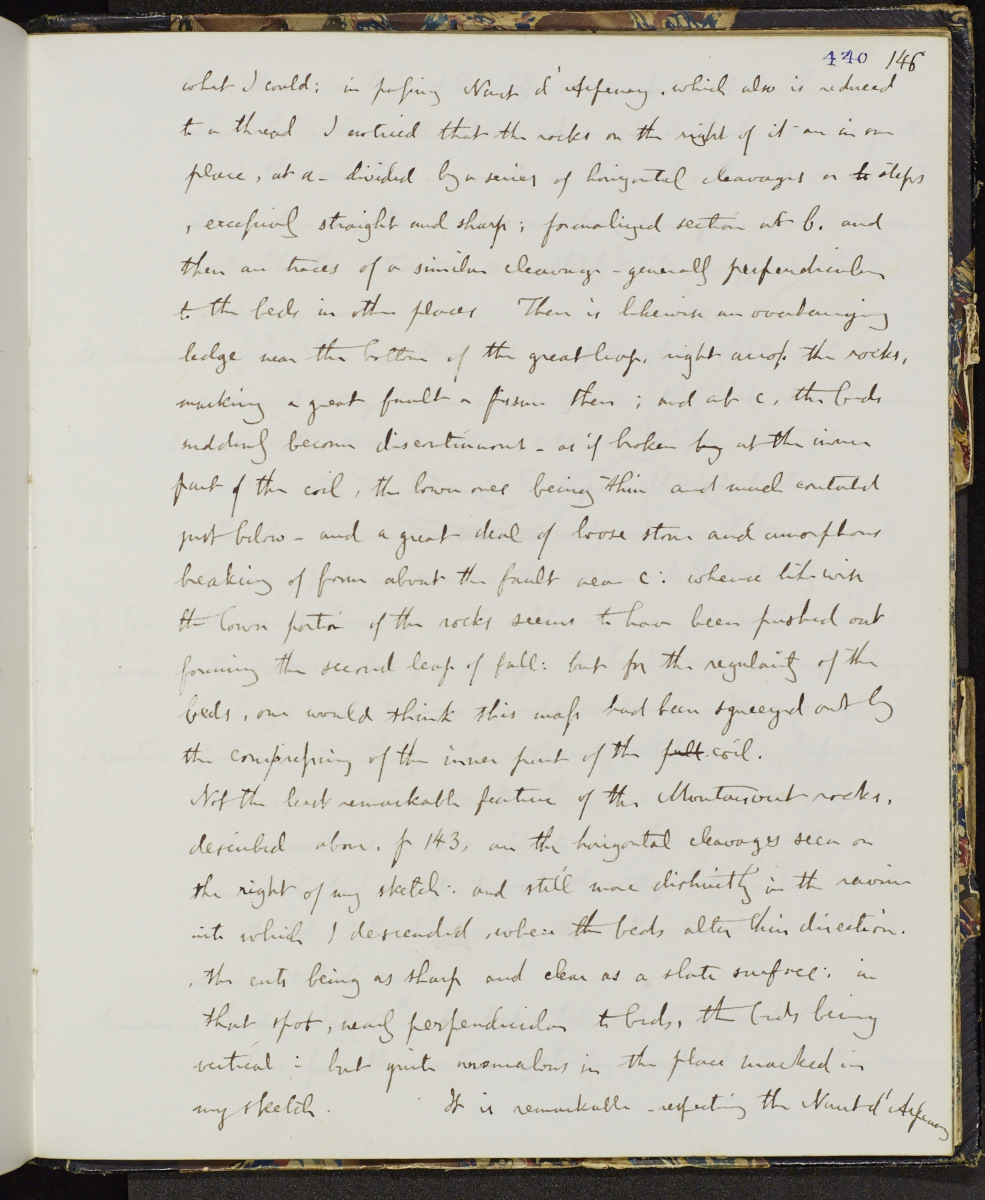 440 146
what I could; in passing Nant d'Arpenaz, which also is reduced
to a thread I noticed that the rocks on the right of it are in one
place, at a - divided by a series of horizontal cleavages or to steps
, excessively straight and sharp; formalized section at b. and
there are traces of a similar cleavage - generally perpendicular
to the beds in other places There is likewise an overhanging
ledge near the bottom of the great leap, right across the rocks,
marking a great fault or fissure there; and at c, the beds
suddenly become discontinuous - as if broken by at the inner
part of the coil, the lower ones being thin and much contorted
just below - and a great deal of loose stone and amorphous
breaking of form about the fault near c: whence likewise
the lower portion of the rocks seems to have been pushed out
forming the second leap of fall: but for the regularity of the
beds, one would think this mass had been squeezed out by
the compressing of the inner part of the coil.
Not the least remarkable feature of the Montanvert rocks,
described above, p 143, are the horizontal cleavages seen on
the right of my sketch: and still more distinctly in the ravine
into which I descended, where the beds alter their direction.
, the cuts being as sharp and clear as a slate surface: in
that spot, nearly perpendicular to beds, the beds being
vertical: but quite anomalous in the place marked in
my sketch. It is remarkable - respecting the Nant d'Arpenaz